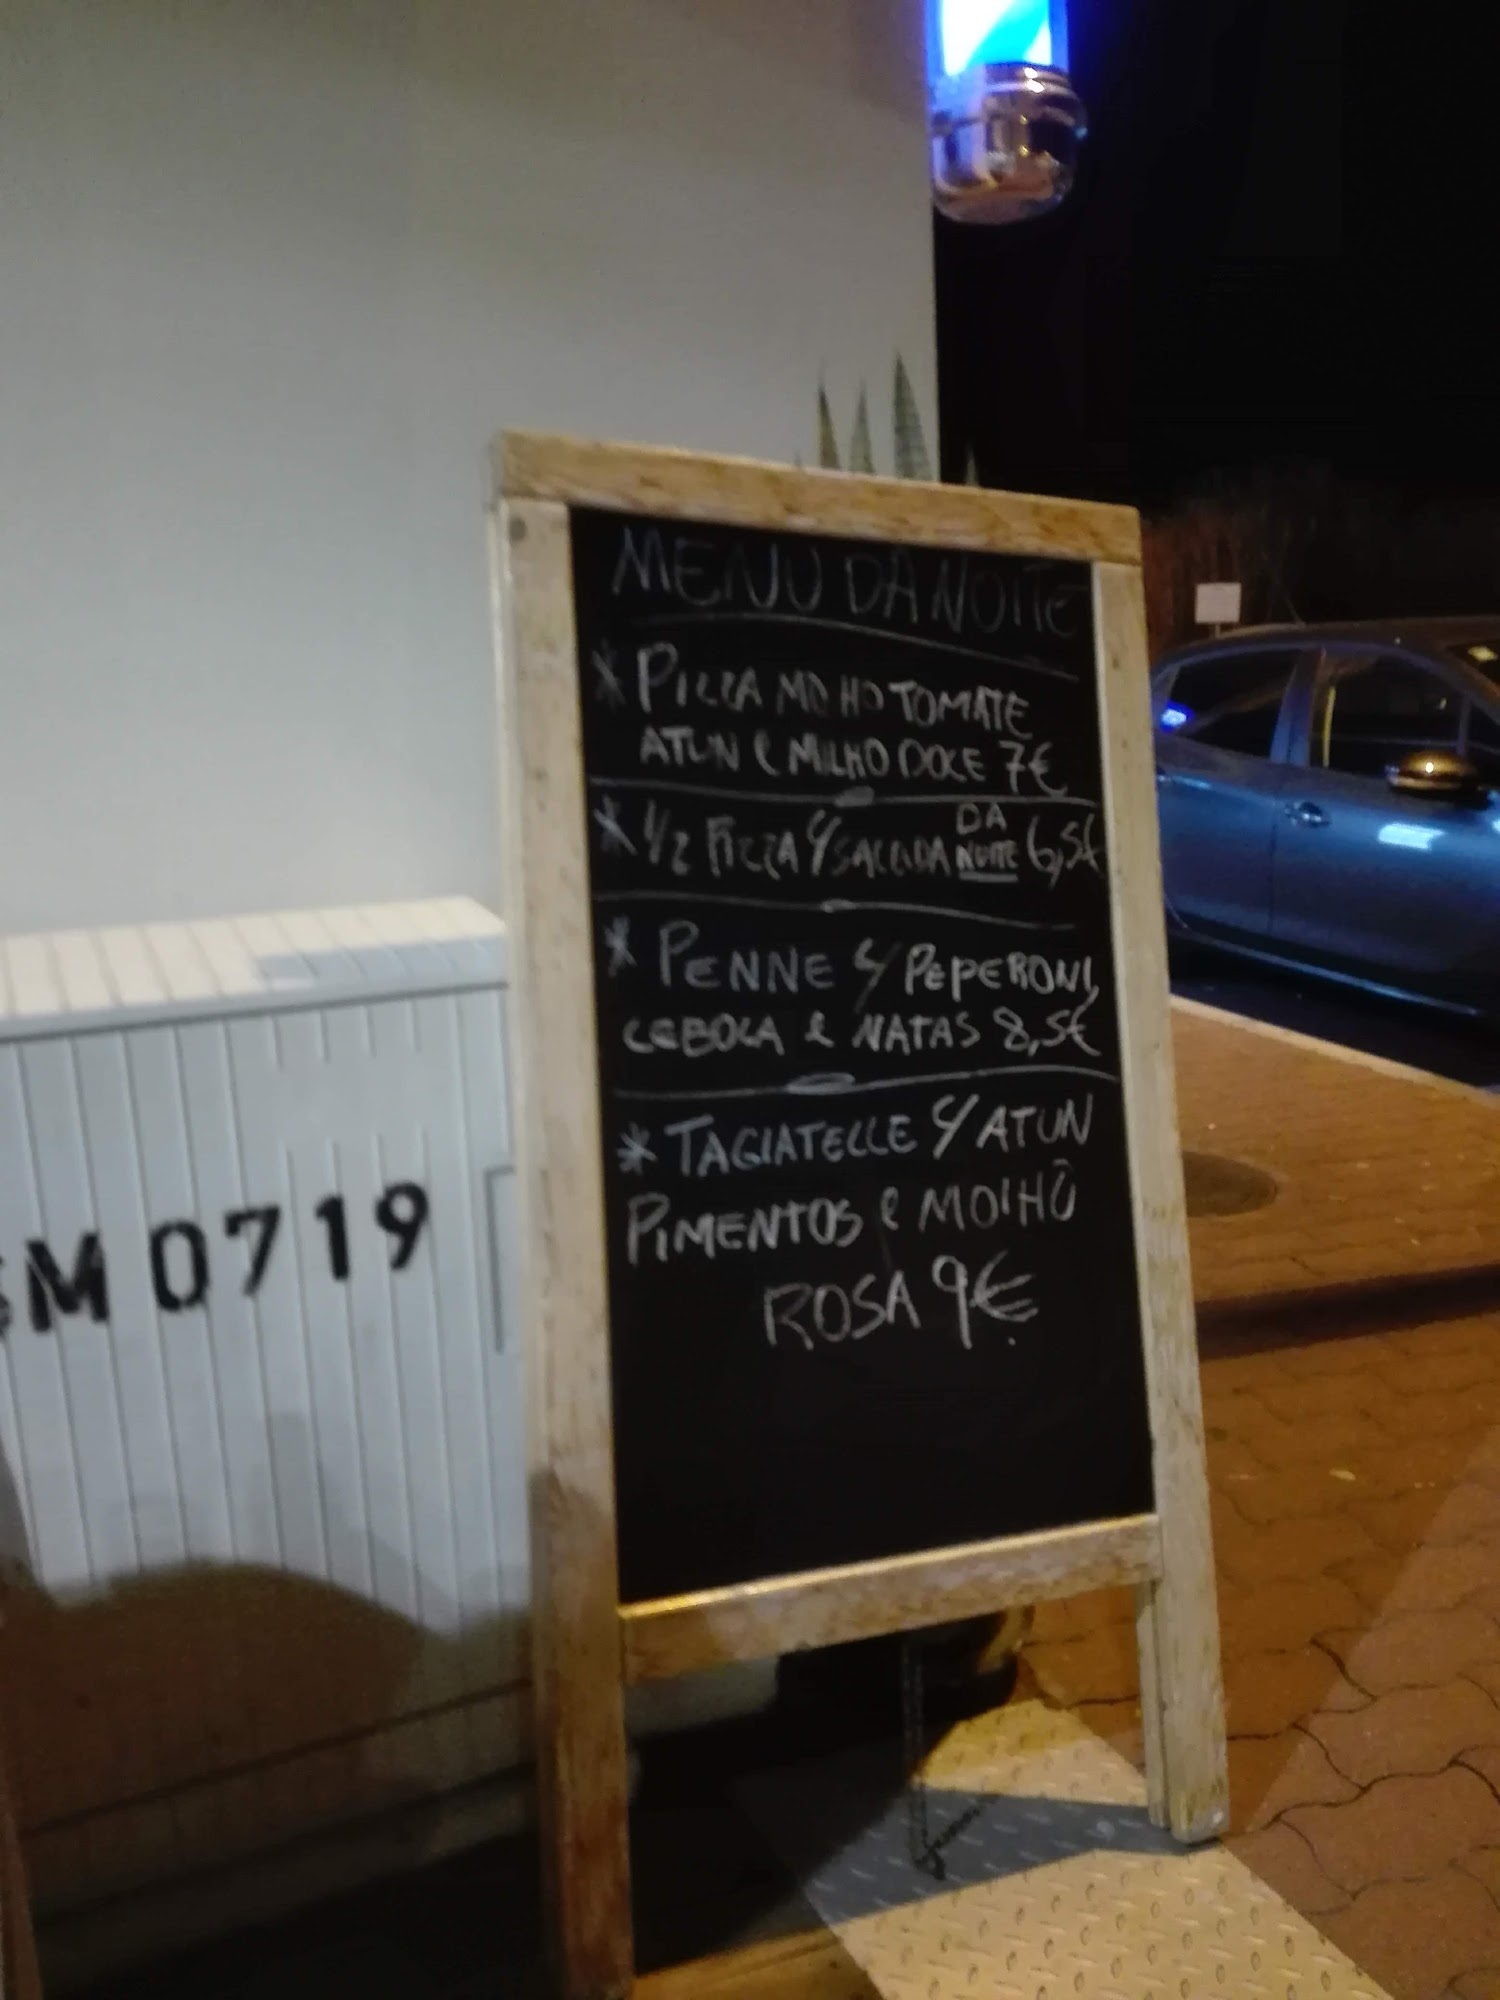 MENU DA NOITE
* PIZZA MOLHO TOMATE
ATUN e MILHO DOCE 7€
* 1/2 PIZZA C/ SALADA DA NOITE 6,5€
* PENNE C/ PEPERONI,
CEBOLA e NATAS 8,5€
* TAGIATELLE C/ ATUN
PIMENTOS e MOLHO
ROSA 9€
M 0719